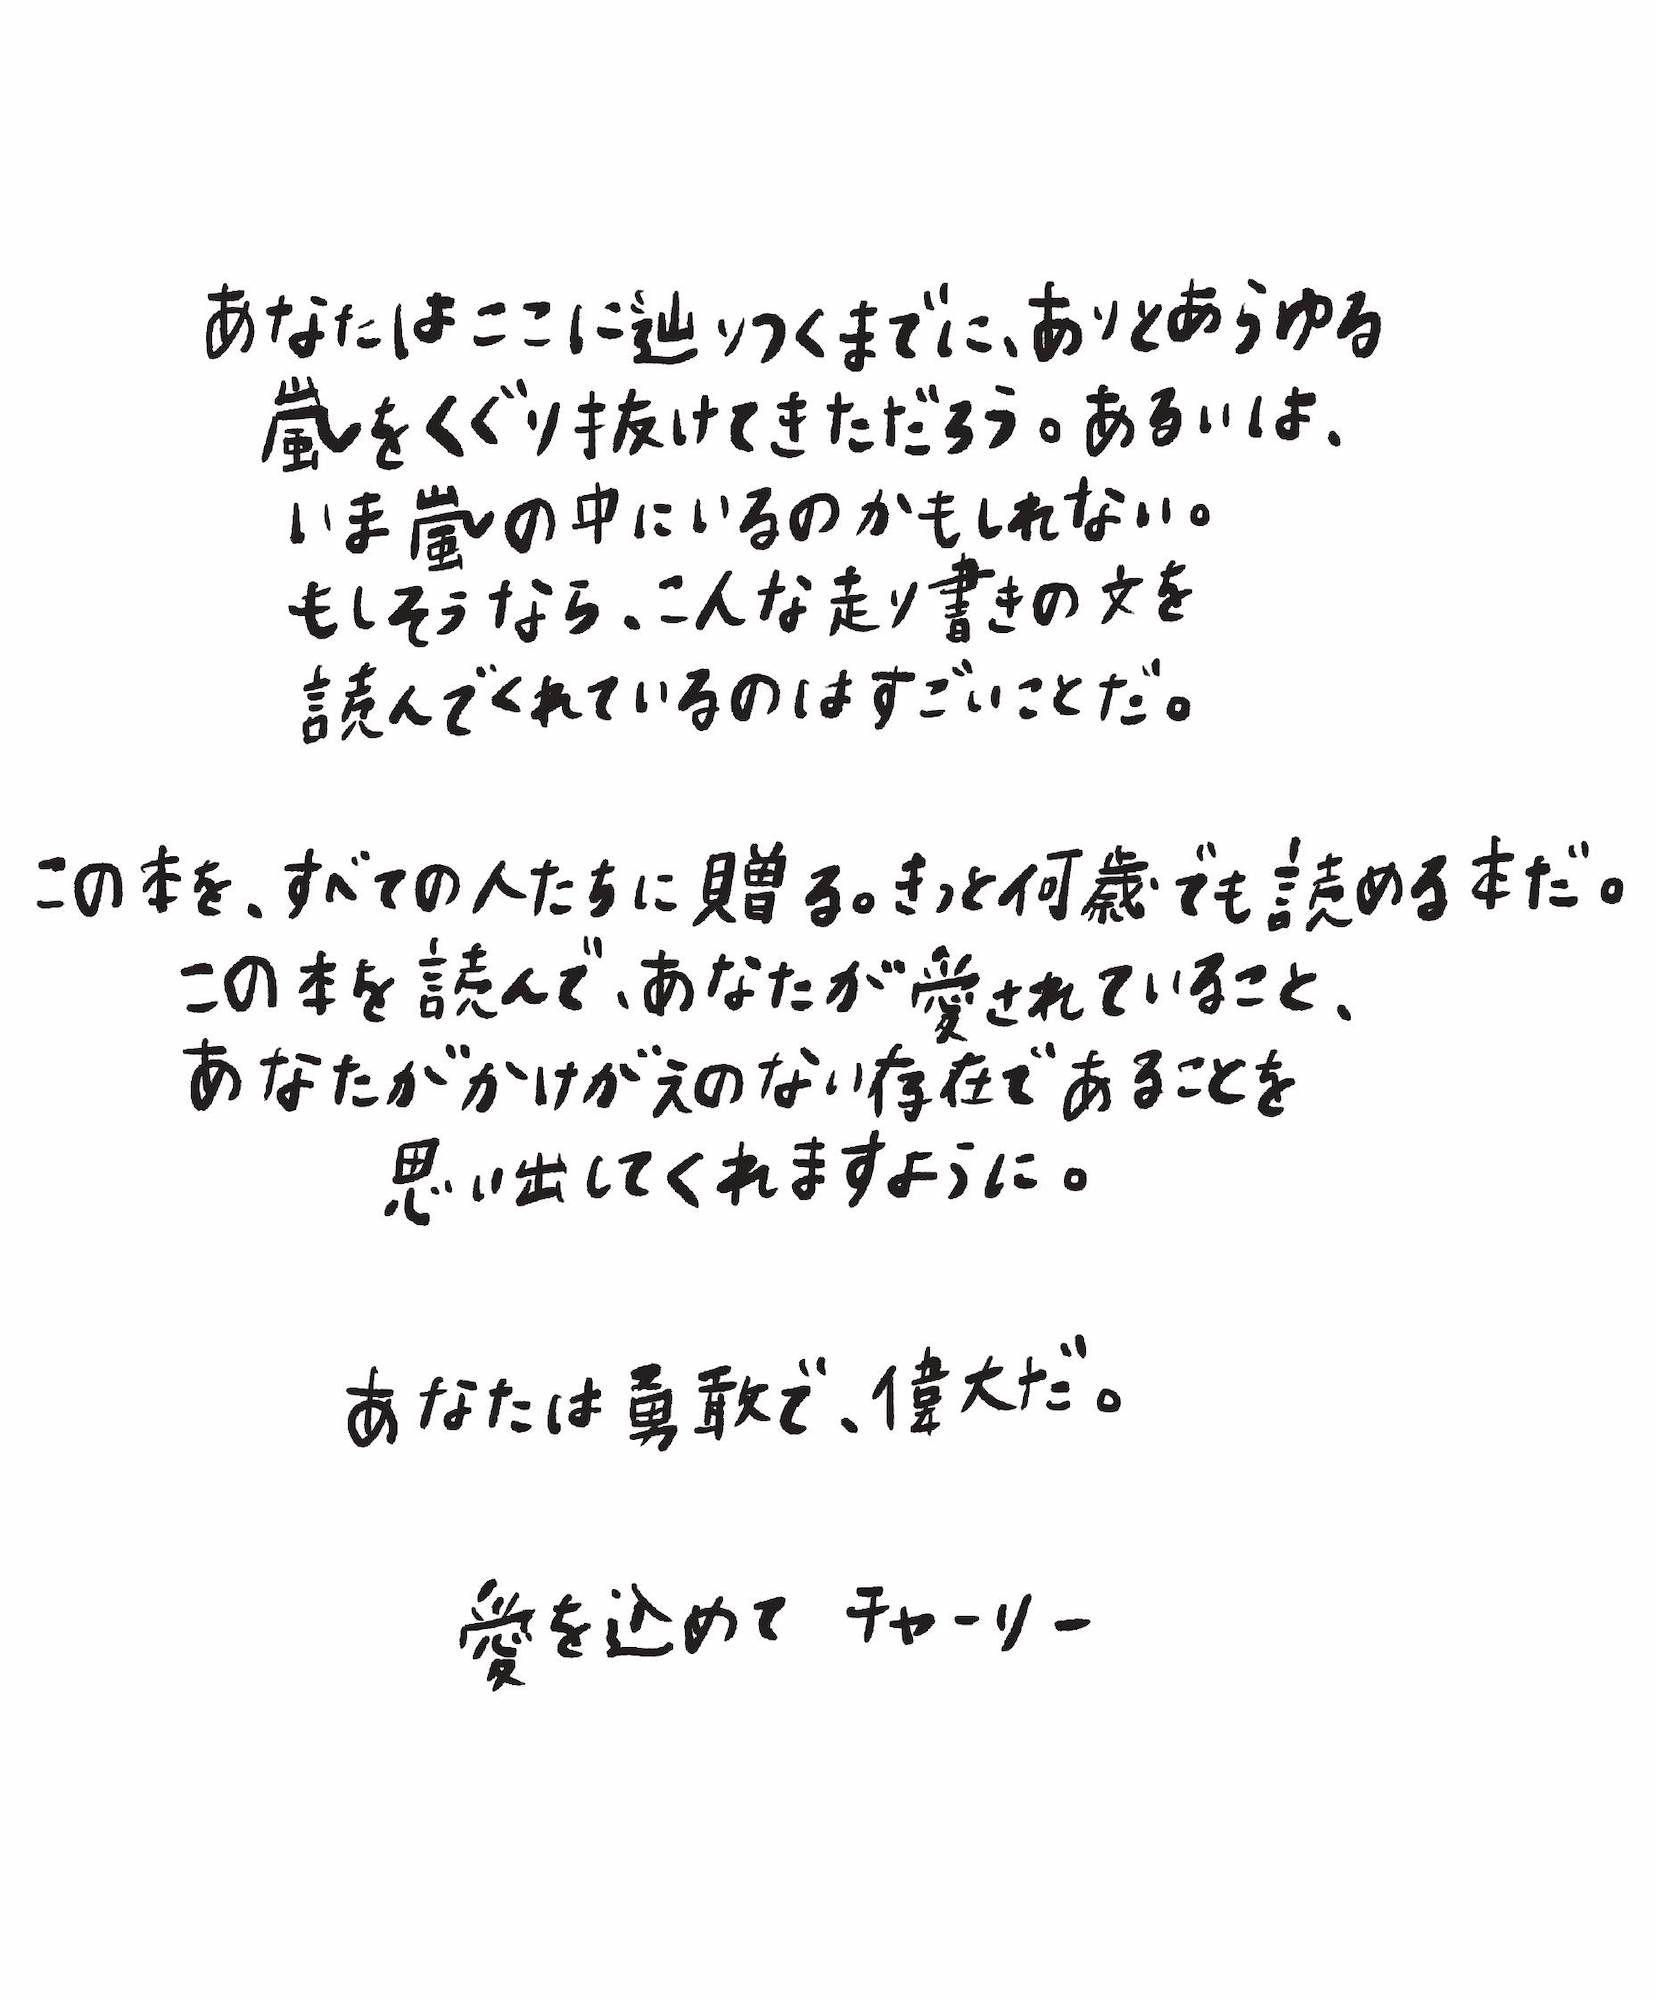 あなたはここに辿りつくまでに、ありとあらゆる
嵐をくぐり抜けてきただろう。あるいは、
いま嵐の中にいるのかもしれない。
もしそうなら、こんな走り書きの文を
読んでくれているのはすごいことだ。
この本を、すべての人たちに贈る。きっと何歳でも読める本だ。
この本を読んで、あなたが愛されていること、
あなたがかけがえのない存在であることを
思い出してくれますように。
あなたは勇敢で、偉大だ。
愛を込めて チャーリー